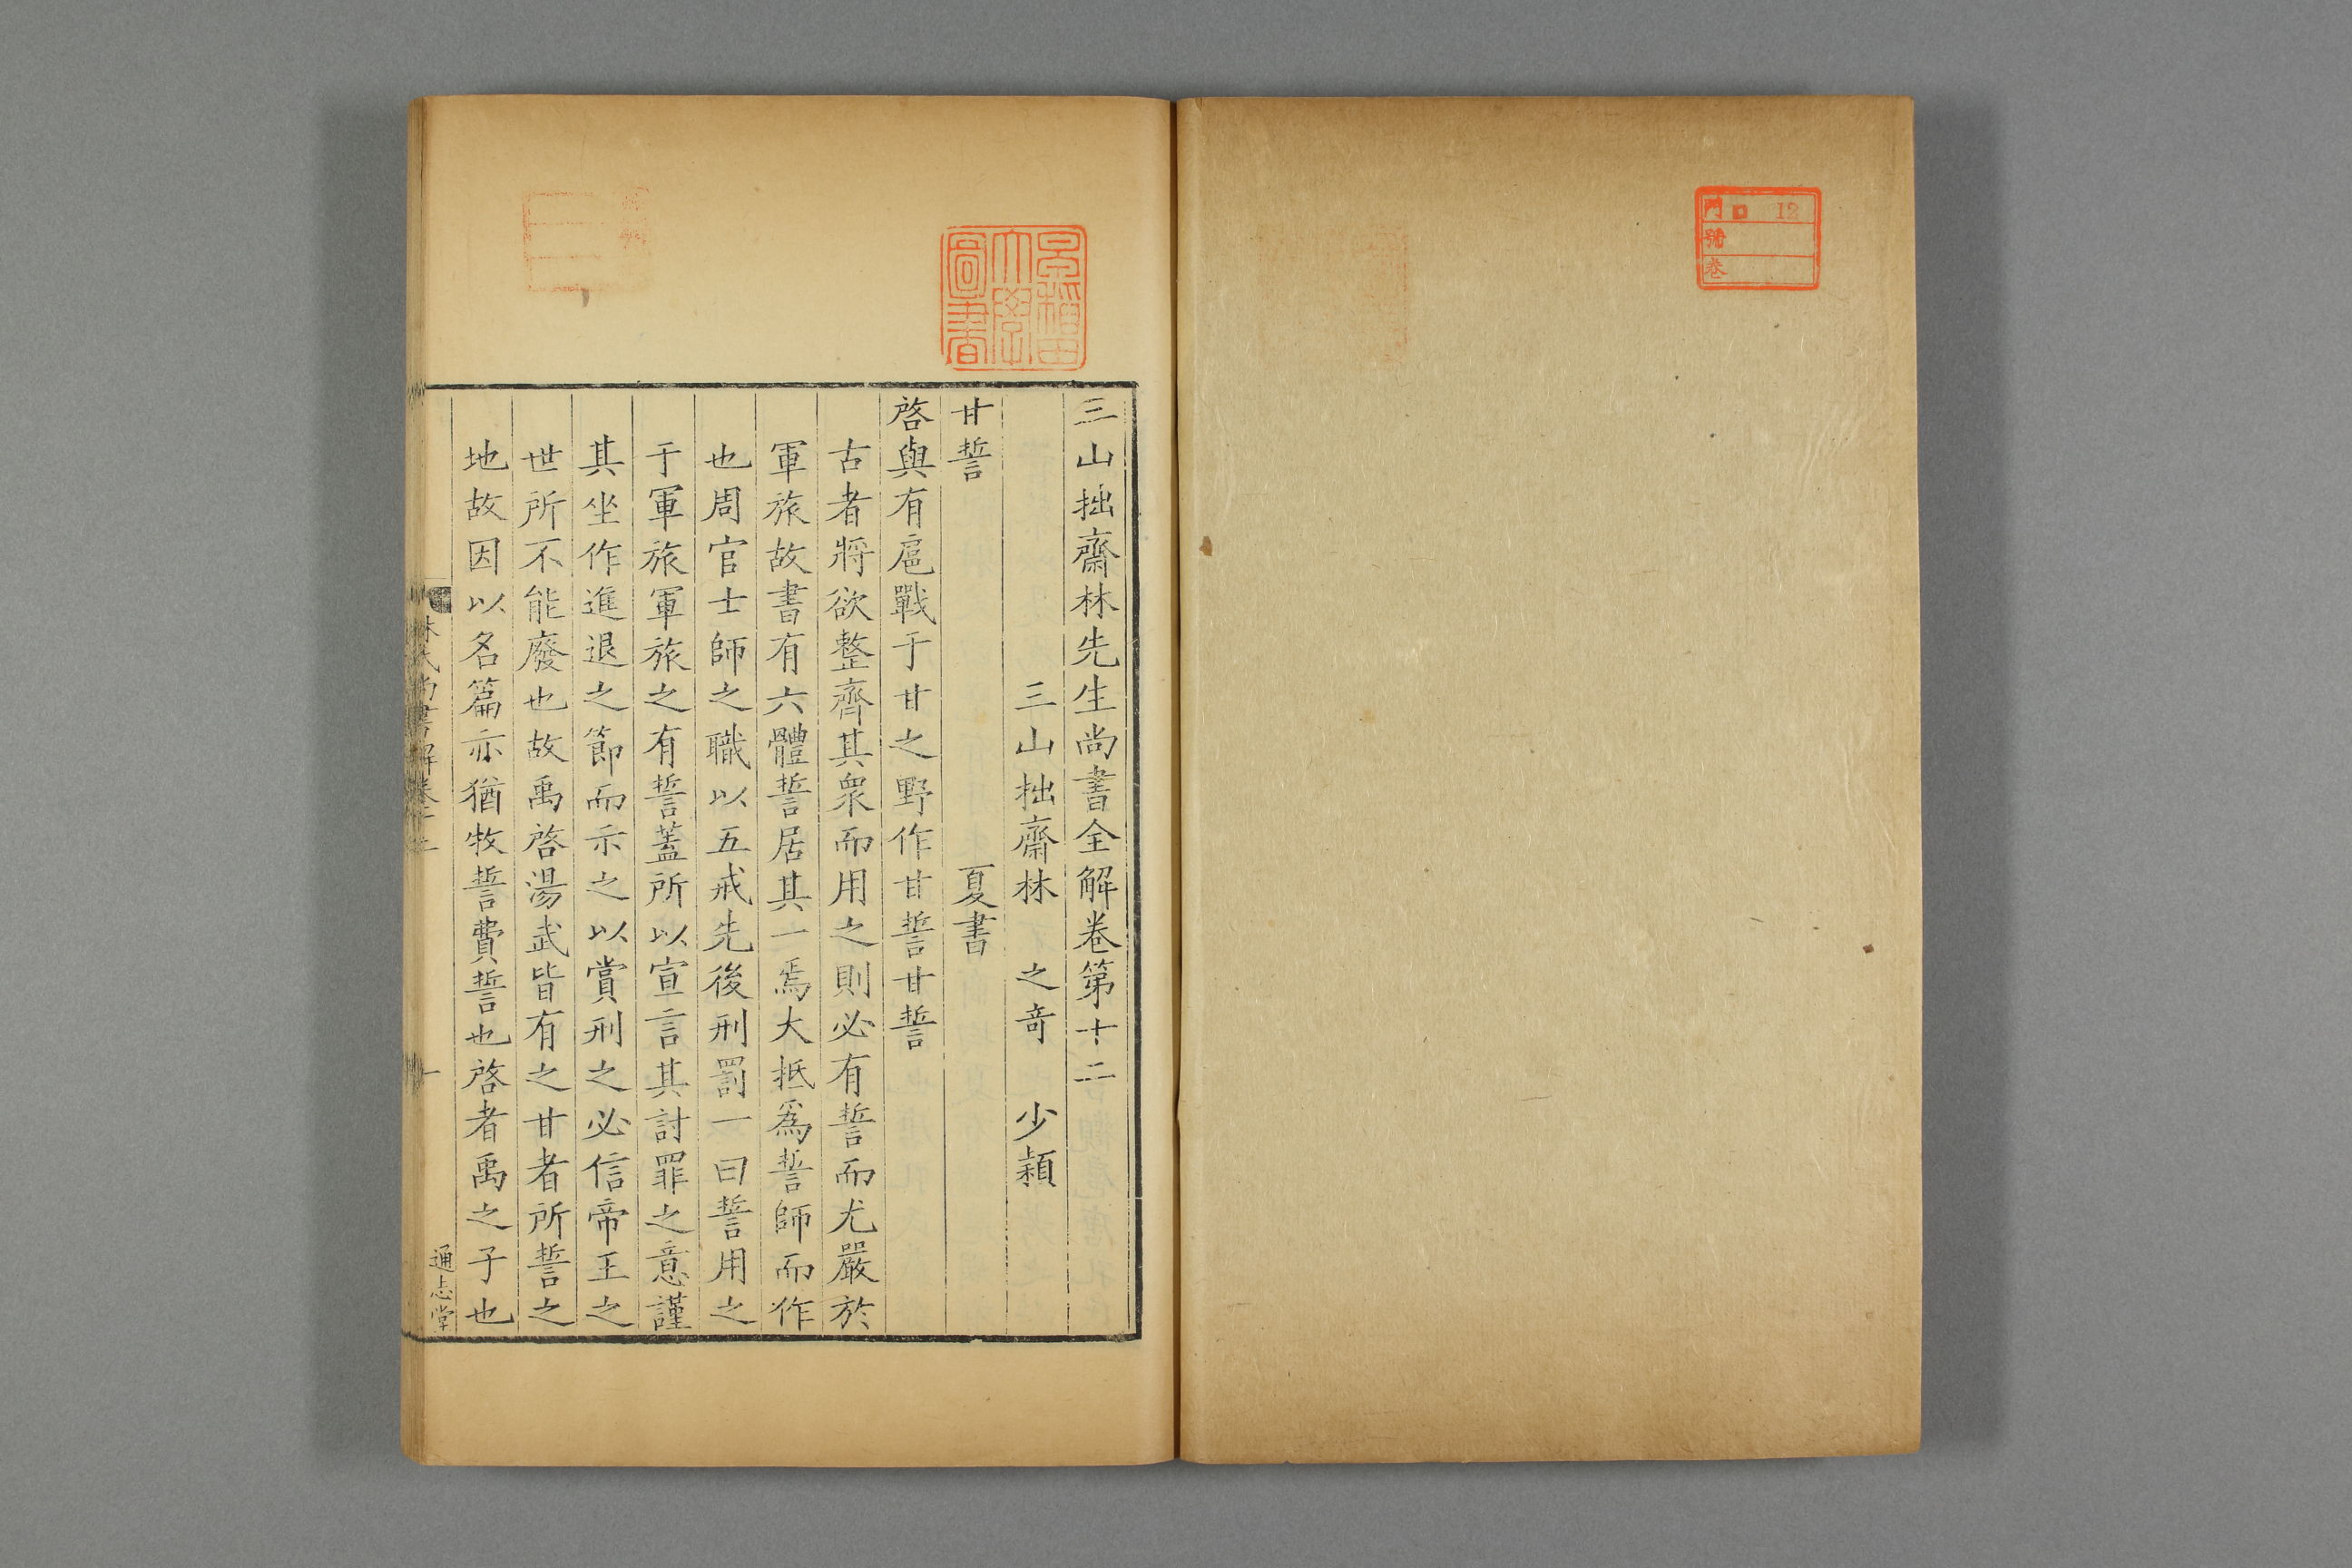 門 ロ 12
號
卷
早稲田
大學
圖書
三山拙齋林先生尚書全解卷第十二
三山拙齋林 之奇 少穎
甘誓 夏書
啓與有扈戰于甘之野作甘誓甘誓
古者將欲整齊其衆而用之則必有誓而尤嚴於
軍旅故書有六體誓居其一焉大抵爲誓師而作
也周官士師之職以五戒先後刑罰一曰誓用之
于軍旅軍旅之有誓蓋所以宣言其討罪之意謹
其坐作進退之節而示之以賞刑之必信帝王之
世所不能廢也故禹啓湯武皆有之甘者所誓之
地故因以名篇亦猶牧誓費誓也啓者禹之子也
林氏尚書解卷十二
一
通志堂